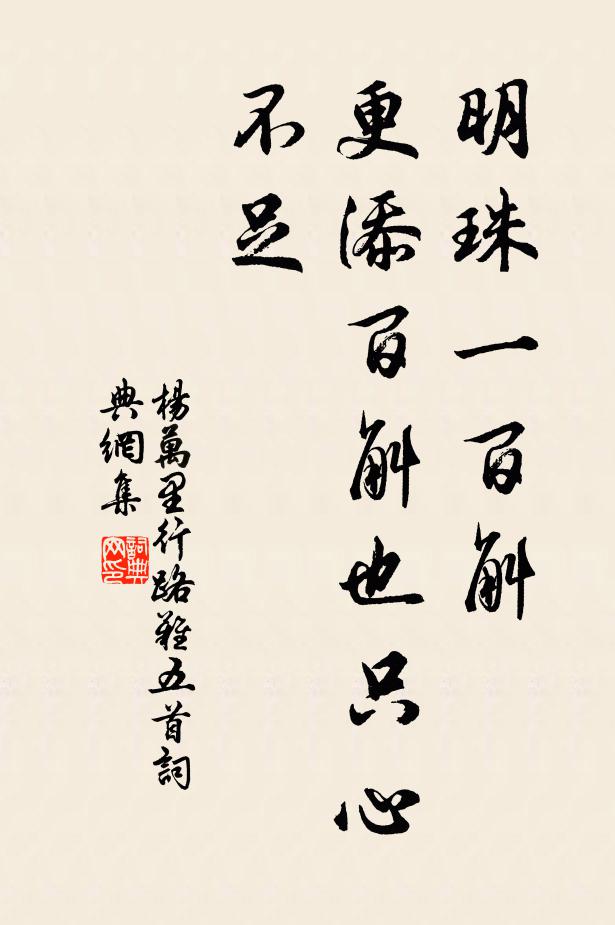 明珠一百斛
更添百斛也只心
不足
楊萬里行路難五首詞
典網集
詞典
网印